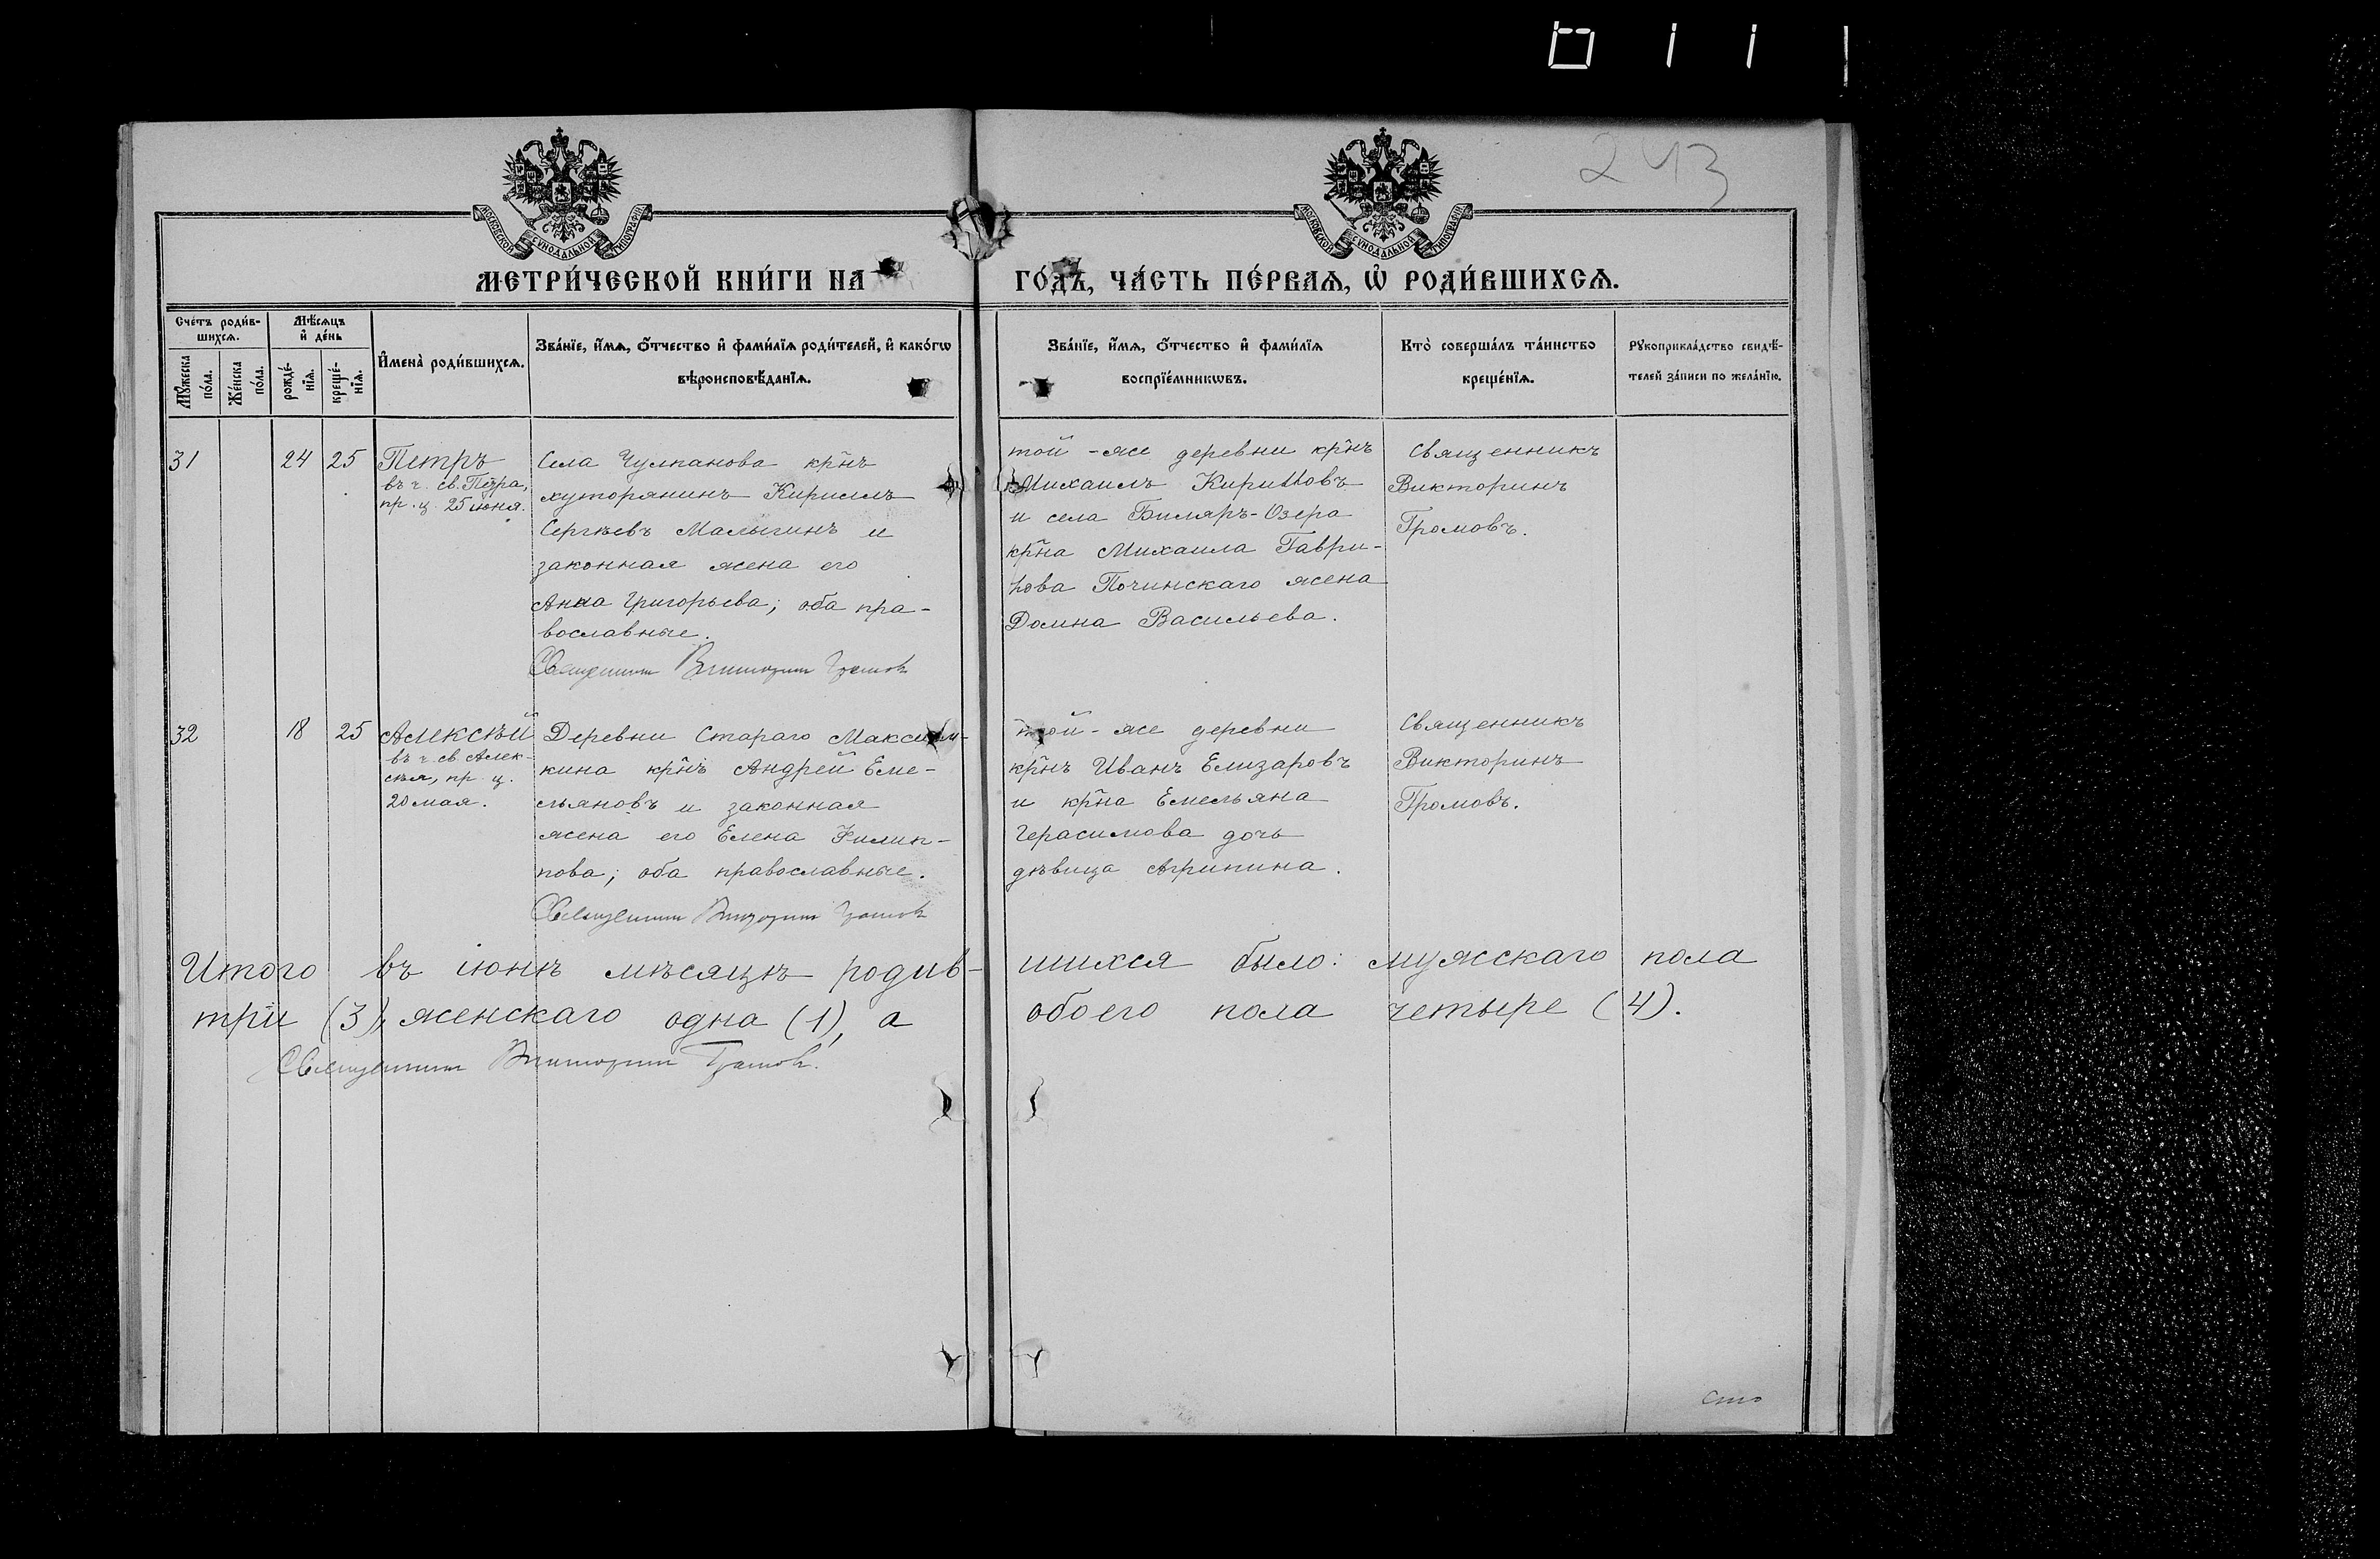 243
МОСКОВСКОЙ СѴНОДАЛЬНОЙ ТИПОГРАФІИ
МОСКОВСКОЙ СѴНОДАЛЬНОЙ ТИПОГРАФІИ
МЕТРИ́ЧЕСКОЙ КНИ́ГИ НА
ГО́ДЪ, ЧА́СТЬ ПЕ́РВАѦ, Ѡ҆ РОДИ́ВШИХСѦ.
Сче́тъ роди́в-
шихсѧ.
Мꙋ́жеска
по́ла.
Же́нска
по́ла.
Мѣ́сѧцъ
и҆ де́нь
рожде́-
нїѧ.
креще́-
нїѧ.
И҆мена̀ роди́вшихсѧ.
Зва́нїе, и҆́мѧ, ѻ҆́тчество и҆ фами́лїѧ роди́телей, и҆ како́гѡ
вѣроисповѣ́данїѧ.
Зва́нїе, и҆́мѧ, ѻ҆́тчество и҆ фами́лїѧ
воспрїе́мникѡвъ.
Кто̀ соверша́лъ та́инство
креще́нїѧ.
Рꙋкоприкла́дство свидѣ́-
телей за́писи по жела́нїю.
31
24
25
Петръ
въ ч. св. Петра,
пр. ц. 25 іюня.
Села Чулпанова кр̃нъ
хуторянинъ Кириллъ
Сергѣевъ Малыгинъ и
законная жена его
Анна Григорьева; оба пра-
вославные.
Священникъ Викторинъ Громовъ
той-же деревни кр̃нъ
Михаилъ Кирилловъ
и села Биляръ-Озера
кр̃на Михаила Гаври-
лова Починскаго жена
Домна Васильева.
Священникъ
Викторинъ
Громовъ.
32
18
25
Алексѣй
въ ч. св. Алек-
сѣя, пр. ц.
20 мая.
Деревни Стараго Максим-
кина кр̃нъ Андрей Еме-
льяновъ и законная
жена его Елена Филип-
пова; оба православные.
Священникъ Викторинъ Громовъ
той-же деревни
кр̃нъ Иванъ Елизаровъ
и кр̃на Емельяна
Герасимова дочь
дѣвица Агрипина.
Священникъ
Викторинъ
Громовъ.
Итого въ іюнѣ мѣсяцѣ родив-
шихся было: мужскаго пола
три (3), женскаго одна (1), а
обоего пола четыре (4).
Священникъ Викторинъ Громовъ.
Сто